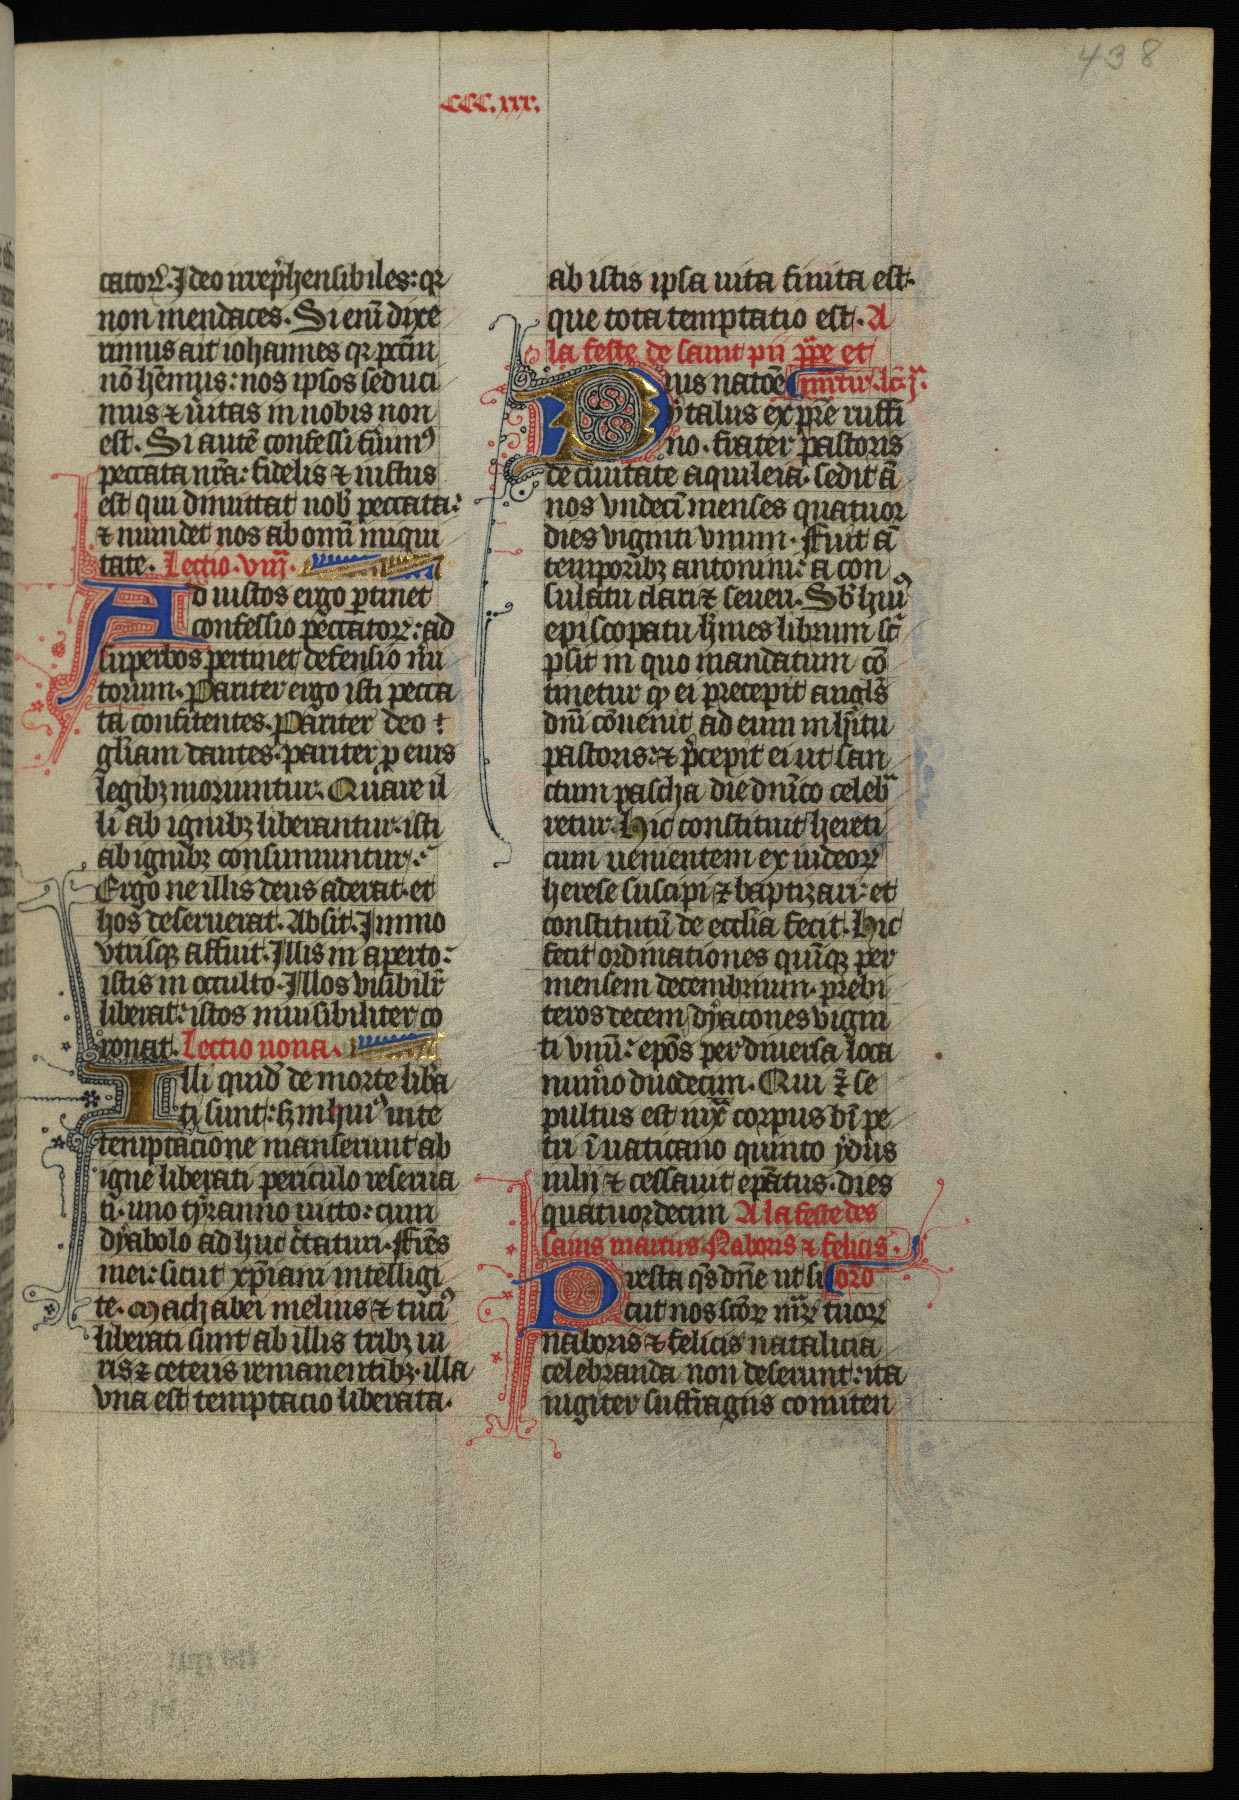 438
CCC.xxx.
catoꝝ. Ideo irrep̃hensibiles: qꝛ
non mendaces. Si eni᷑ dixe
rimus ait iohannes qꝛ pctm̃
nō hēmus: nos ipsos seduci
mus ⁊ ũitas in nobis non
est. Si autē confessi fũimꝰ
peccata nrã: fidelis ⁊ iustus
est qui dimittat nob̃ peccata:
⁊ mundet nos ab omĩ iniqui
tate. Lectio. viij.
Ad iustos ergo ꝑtinet
confessio peccatoꝝ: ad
superbos pertinet defensio m̃i
torum. Pariter ergo isti pecca
ta confitentes. Pariter deo
gl̃iam dantes. pariter p eius
legibꝫ moriuntur. Quare il
li ab ignibꝫ liberantur. isti
ab ignibꝫ consumuntur.
Ergo ne illis deus aderat. et
hos deseruerat. Absit. Immo
vtrisqꝫ affuit. Illis in aperto:
istis in occulto. Illos visibilr̃
liberat: istos inuisibiliter co
ronat. Lectio nona.
Illi quid̃ de morte lib̃a
ti sunt: sꝫ in huiꝰ uite
temptacione manserunt ab
igne liberati periculo reserua
ti. uno tyranno uicto: cum
dyabolo ad huc c̃taturi. Ffr̃es
mei: sicut xp̃iani intelligi
te. Machabei melius ⁊ tuciꝰ
liberati sunt ab illis tribꝫ iu
ris ⁊ ceteris remanentibꝫ. illa
vna est temptacio liberata.
ab istis ipsa uita finita est.
que tota temptatio est. A
la feste de saint pii pp̃e et
Pius natōe martir. lc̃. j.
ytalus ex pr̃e ruffi
no. frater pastoris
de ciuitate aquileia. sedit ā
nos vndeci᷑ menses quatuor
dies viginti vnum. Ffuit ā
temporibꝫ antonini: a con
sulatu clari ⁊ seueri. Sb̃ huiꝰ
episcopatu h̃mes librum sc̃
psit in quo mandatum cō
tinetur ꝙ ei precepit angl̃s
dñi cōuenit ad eum in h̃itu
pastoris: ⁊ p̃cepit ei ut san
ctum pascha die dñico celeb̃
retur. Hic constituit hereti
cum uenientem ex iudeoꝝ
herese suscipi ⁊ baptizari: et
constitutũ de ecclĩa fecit. Hic
fecit ordinationes quĩqꝫ per
mensem decembrium. presbi
teros decem dyacones vigin
ti vnũ: ep̃os per diuersa loca
nũmo duodecim. Qui ⁊ se
pultus est iuxͣ corpus bĩ pe
tri ĩ uaticano quinto ydus
iulij ⁊ cessauit ep̃atus. dies
quatuordecim A la feste des
sains martirs. Naboris ⁊ felicis.
Presta qs̃ dñe ut si oro
cut nos scōꝝ mr̃ꝝ tuoꝝ
naboris ⁊ felicis natalicia
celebranda non deserunt: ita
iugiter suffragiis comiten